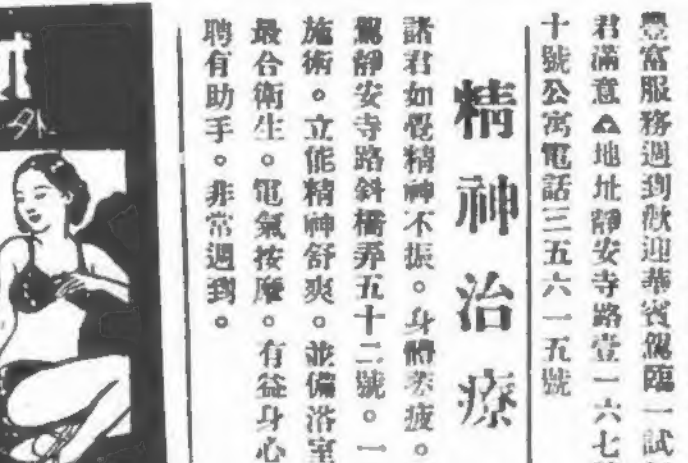 豐富服務週到歡迎恭賓駕臨一試
君滿意▲地址靜安寺路壹一六七
十號公寓電話三五六一五號
精神治療
諸君如覺精神不振。身體柔疲。
駕靜安寺路斜橋弄五十二號。一
施術。立能精神舒爽。並備浴室
最合衛生。電氣按摩。有益身心
聘有助手。非常週到。
外